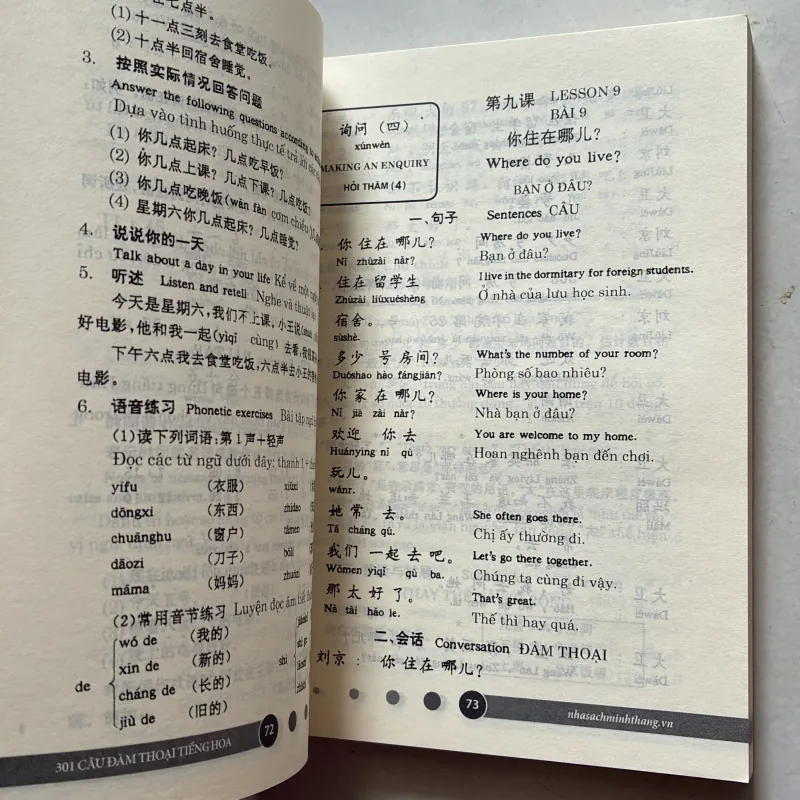 在七点半。
(1) 十一点三刻去食堂吃饭。
(2) 十点半回宿舍睡觉。
3. 按照实际情况回答问题
Answer the following questions according to
Dựa vào tình huống thực tế trả lời các
(1) 你几点起床？几点吃早饭？
(2) 你几点上课？几点下课？几点吃饭？
(3) 你几点吃晚饭 (wǎn fàn cơm chiều)
(4) 星期六你几点起床？几点睡觉？
4. 说说你的一天
Talk about a day in your life Kể về một
5. 听述 Listen and retell Nghe và thuật
今天是星期六，我们不上课，小王说
好电影，他和我一起(yìqǐ cùng) 去看，我很
下午六点我去食堂吃饭，六点半去小王的
电影。
6. 语音练习 Phonetic exercises Bài tập
(1) 读下列词语：第1声＋轻声
Đọc các từ ngữ dưới đây: thanh 1 +
yīfu (衣服) xiūxi
dōngxi (东西) zhīdao
chuānghu (窗户) tāmen
dāozi (刀子)
māma (妈妈) zhuōzi
(2) 常用音节练习 Luyện đọc âm tiết
wǒ de (我的)
xīn de (新的)
de
shi
cháng de (长的)
jiù de (旧的)
72
301 CÂU ĐÀM THOẠI TIẾNG HOA
询问（四）
xúnwèn
MAKING AN ENQUIRY
HỎI THĂM (4)
第九课 LESSON 9
BÀI 9
你住在哪儿？
Where do you live?
BẠN Ở ĐÂU?
一、句子 Sentences CÂU
你 住在 哪儿？ Where do you live?
Nǐ zhùzài nǎr? Bạn ở đâu?
住在 留学生 I live in the dormitary for foreign students.
Zhùzài liúxuéshēng Ở nhà của lưu học sinh.
宿舍。
sùshè.
多少 号 房间？ What's the number of your room?
Duōshao hào fángjiān? Phòng số bao nhiêu?
你 家 在 哪儿？ Where is your home?
Nǐ jiā zài nǎr? Nhà bạn ở đâu?
欢迎 你 去 You are welcome to my home.
Huānyíng nǐ qù Hoan nghênh bạn đến chơi.
玩儿。
wánr.
她 常 去。 She often goes there.
Tā cháng qù. Chị ấy thường đi.
我们 一起 去 吧。 Let's go there together.
Wǒmen yìqǐ qù ba. Chúng ta cùng đi vậy.
那 太 好 了。 That's great.
Nà tài hǎo le. Thế thì hay quá.
二、会话 Conversation ĐÀM THOẠI
刘京： 你 住在 哪儿？
73
nhasachminhthang.vn